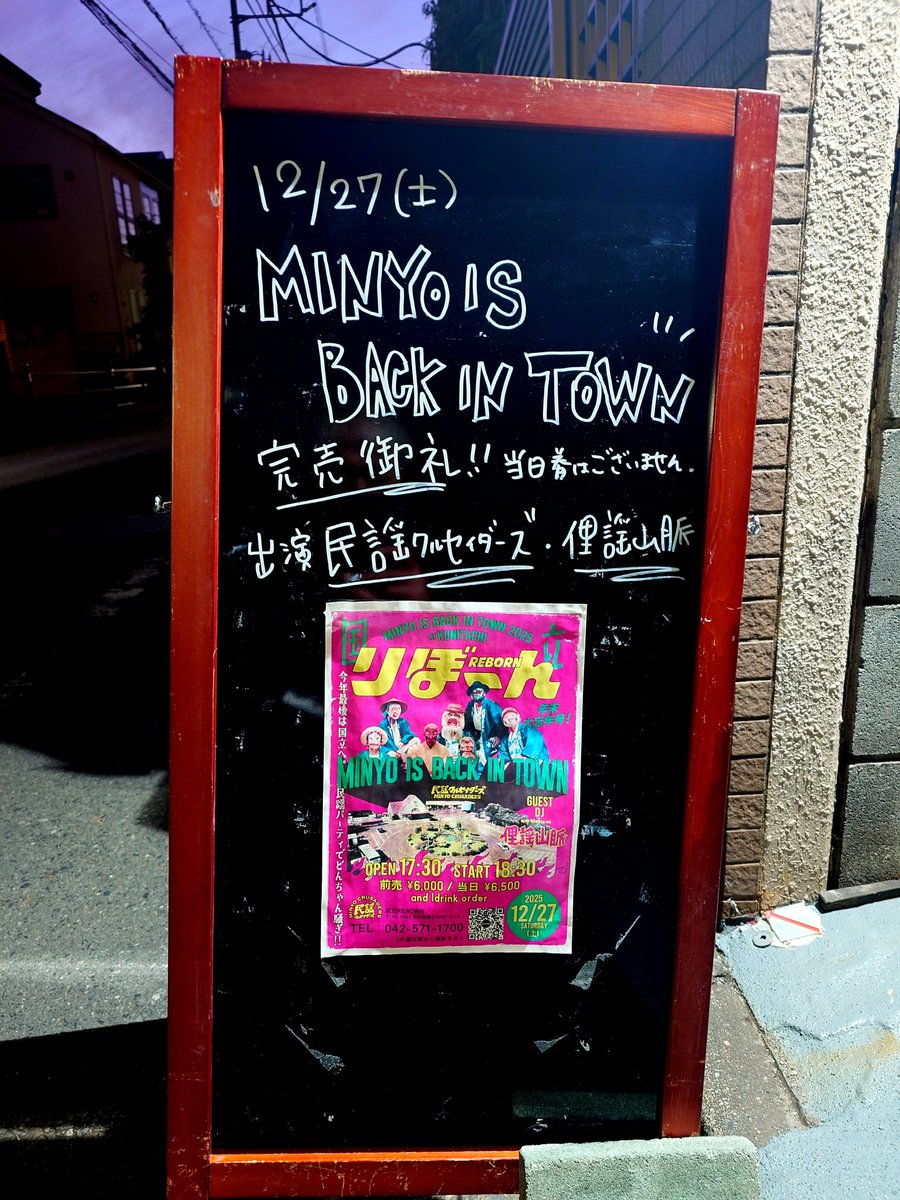 12/27(土)
MINYO IS
BACK IN TOWN
完売御礼!! 当日券はございません.
出演 民謡クルセイダーズ・俚謡山脈
MINYO IS BACK IN TOWN 2025
IN KUNITACHI
国立
りぼーん
REBORN
今年最後は国立へ 民謡パーティでどんちゃん騒ぎ!!
MINYO IS BACK IN TOWN
民謡クルセイダーズ
MINYO CRUSADERS
GUEST
DJ
俚謡山脈
OPEN 17:30 START 18:30
前売 ¥6,000 / 当日 ¥6,500
and 1drink order
国立REBORN
TEL : 042-571-1700
2025
12/27
SATURDAY
(土)